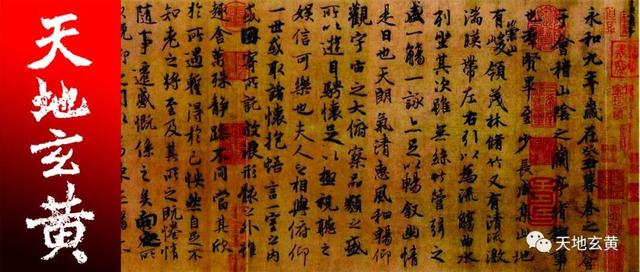 天地玄黄
永和九年歲在癸丑暮春之初會
于會稽山陰之蘭亭脩稧事
也羣賢畢至少長咸集此地
有崇山峻領茂林脩竹又有清流激
湍暎帶左右引以為流觴曲水
列坐其次雖無絲竹管弦之
盛一觴一詠亦足以暢敘幽情
是日也天朗氣清惠風和暢仰
觀宇宙之大俯察品類之盛
所以遊目騁懷足以極視聽之
娛信可樂也夫人之相與俯仰
一世或取諸懷抱悟言一室之內
或因寄所託放浪形骸之外雖
趣舍萬殊靜躁不同當其欣
於所遇蹔得於己怏然自足不
知老之將至及其所之既惓情
隨事遷感慨係之矣向之所
天地玄黄